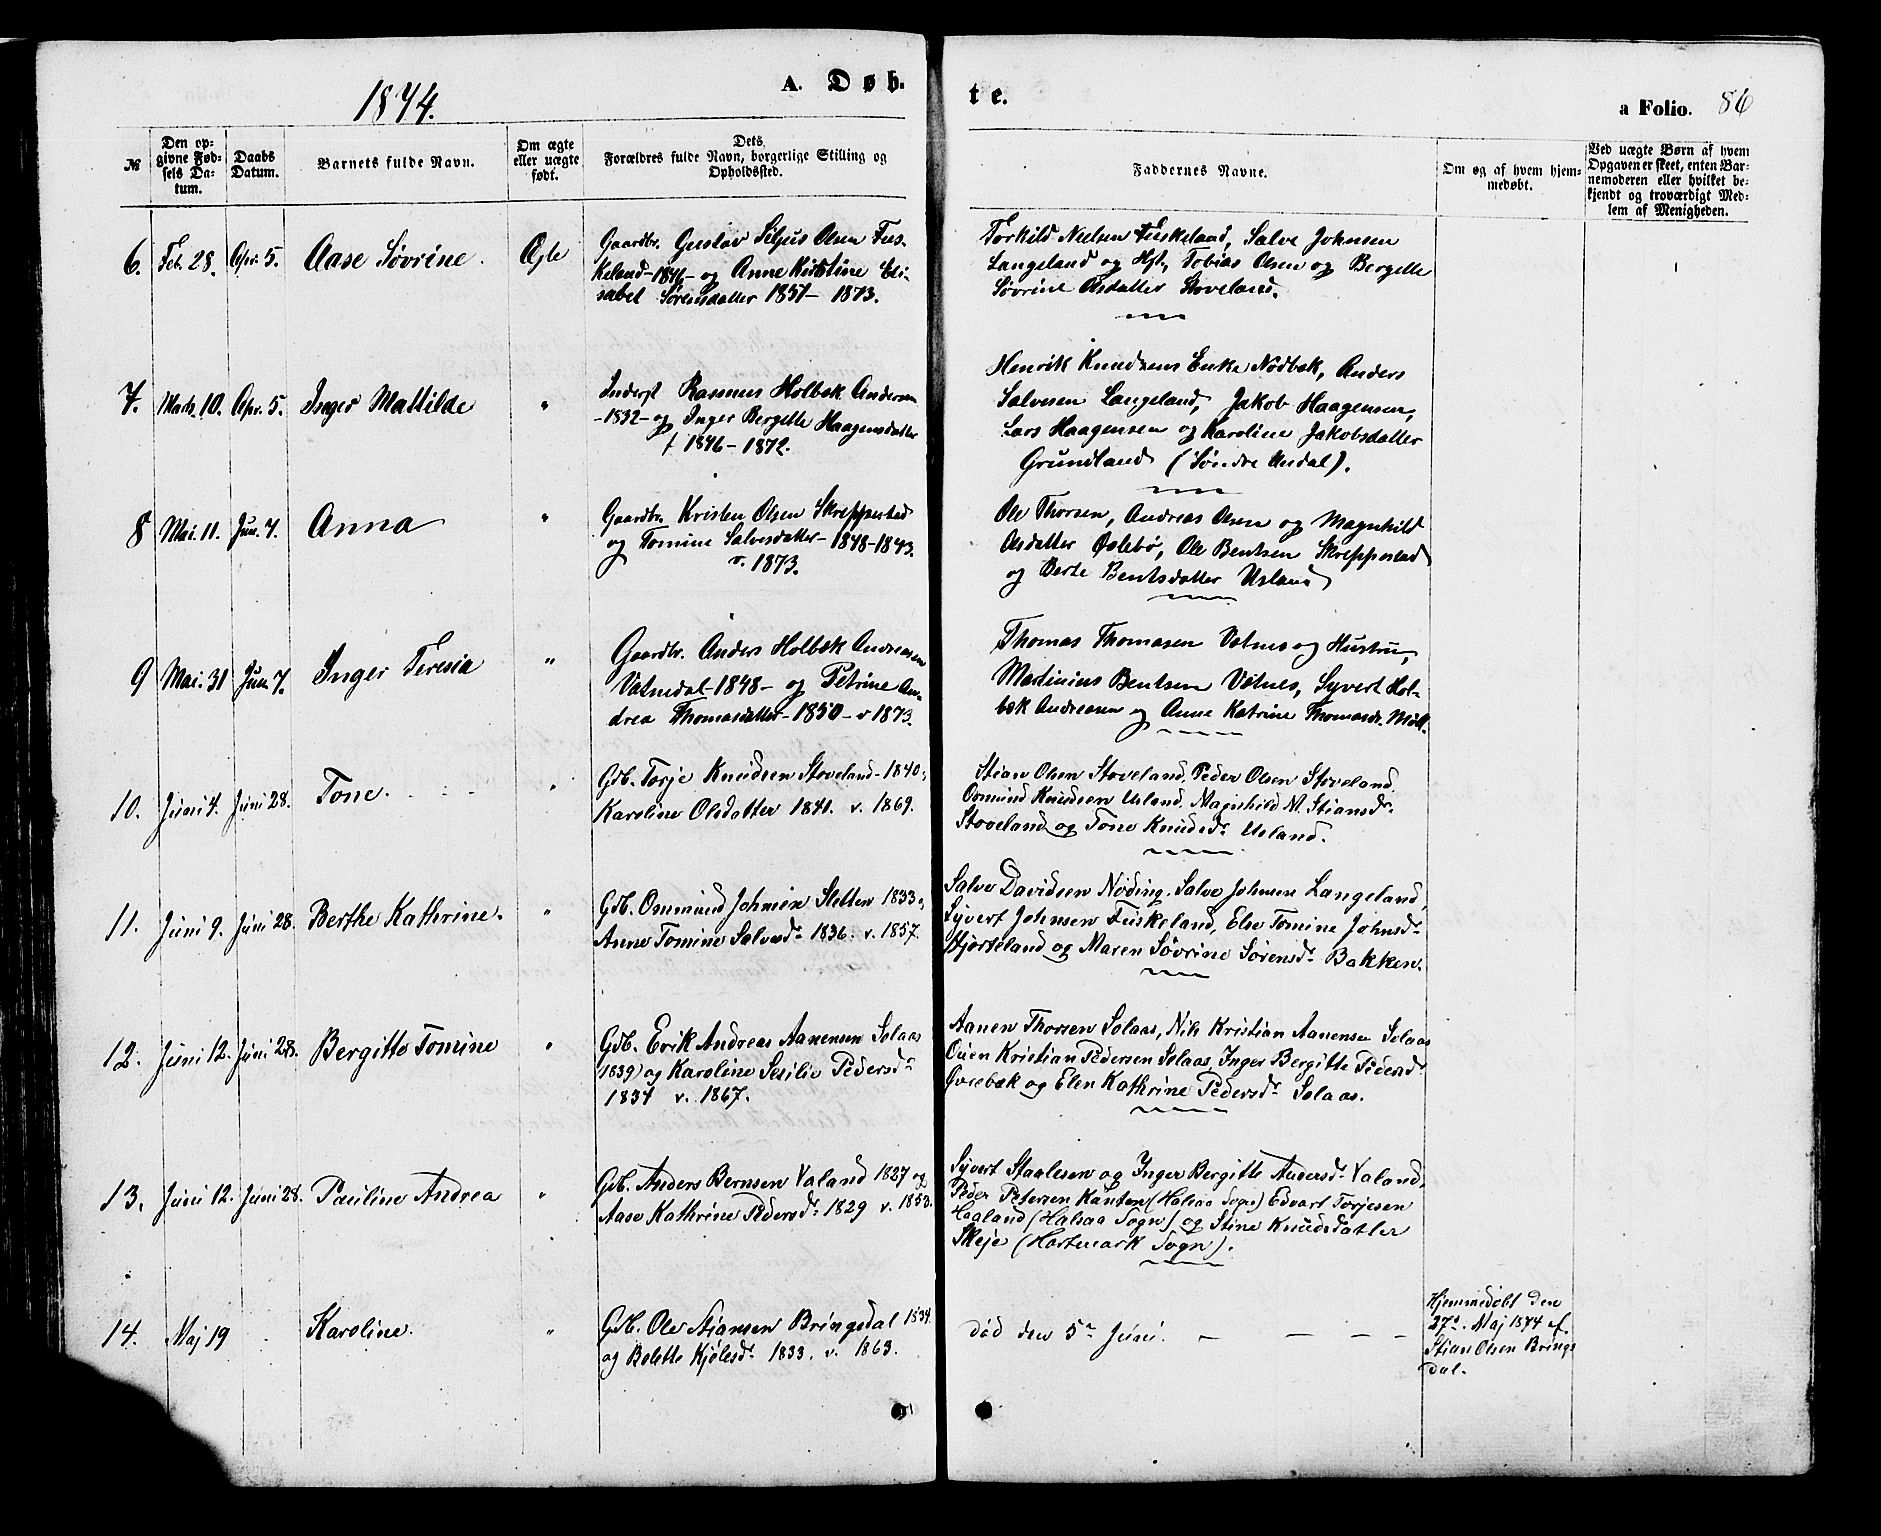 1874.
A. Døb.
te.
a Folio. 86
№
Den op-
givne Fød-
sels Da-
tum.
Daabs
Datum.
Barnets fulde Navn.
Om ægte
eller uægte
født.
Dets
Forældres fulde Navn, borgerlige Stilling og
Opholdssted.
Faddernes Navne.
Om og af hvem hjem-
medøbt.
Ved uægte Børn af hvem
Opgaven er skeet, enten Bar-
nemoderen eller hvilket be-
kjendt og troværdigt Med-
lem af Menigheden.
6. Feb. 28. Apr. 5. Aase Søvrine. Ægte
Gaardbr. Gustav Siljus Olsen Fus-
keland - 1846 - og Anne Kirstine Eli-
sabet Sørensdatter 1851 - 1873.
Torkild Nielsen Fuskeland, Salve Johnsen
Langeland og Hst., Tobias Olsen og Bergette
Søvrine Olsdatter Stoveland.
7. Marts 10. Apr. 5. Inger Mattilde "
Inderst Rasmus Holbæk Andersen
- 1832 - og Inger Bergette Haagensdatter
f 1846 - 1872.
Henrik Knudsens Enke Nødbæk, Anders
Salvesen Langeland, Jakob Haagensen,
Lars Haagensen og Karoline Jakobsdatter
Grundland (Søndre Undal).
8 Mai. 11. Jun. 7. Anna "
Gaardbr. Kristen Olsen Skreppestad
og Tomine Salvesdatter - 1848 - 1843.
v. 1873.
Ole Thorsen, Andreas Olsen og Magnhild
Olsdatter Øslebø, Ole Bentsen Skreppestad
og Berte Bentsdatter Usland
9 Mai. 31 Jun 7. Inger Teresia "
Gaardbr. Anders Holbæk Andreasen
Vatnedal - 1848 - og Petrine An-
drea Thomasdatter - 1850 - v 1873.
Thomas Thomasen Vatnes og Hustru,
Martinius Bentsen Vatnes, Syvert Hol-
bæk Andreasen og Anne Katrine Thomasdr. Moll.
10. Juni 4. Juni 28. Tone. "
Gdb. Torje Knudsen Stoveland - 1840,
Karoline Olsdatter 1841. v. 1869.
Stian Olsen Stoveland. Peder Olsen Stoveland.
Osmund Knudsen Usland. Magnhild M. Stiansdr.
Stoveland og Tone Knudsdr. Usland.
11. Juni 9. Juni 28. Berthe Kathrine. "
Gdb. Ommund Johnsen Sletten 1833 og
Anne Tomine Salvesdr. 1836. v. 1857.
Salve Davidsen Nøding. Salve Johnsen Langeland,
Syvert Johnsen Fuskeland, Else Tomine Johnsdr.
Hjorteland og Maren Søvrine Sørensdr. Bakken.
12. Juni 12. Juni 28. Bergitte Tomine "
Gdb. Erik Andreas Aanensen Solaas
1839) og Karoline Sesilie Pedersdr.
1834 v. 1867.
Aanen Thorsen Solaas, Nils Kristian Aanensen Solaas
Ouen Kristian Pedersen Solaas, Inger Bergitte Pedersdr.
Øvrebæk og Elen Kathrine Pedersdr. Solaas.
13. Juni 12. Juni 28. Pauline Andrea "
Gdb. Anders Berntsen Valand 1827 og
Aase Kathrine Pedersdr. 1829 v. 1853.
Syvert Staalesen og Inger Bergitte Andersdr. Valand,
Peder Petersen (Halsaa Sogn) Edvart Torjesen
Haaland (Halsaa Sogn) og Stine Knudsdatter
Skeje (Hartmark Sogn).
14. Maj 19 Karoline. "
Gdb. Ole Stiansen Bringsdal 1834
og Bolette Kjølesdr. 1833. v. 1863.
død den 5te Juni. — — — —
Hjemmedøbt den
27de. Maj 1874 af
Stian Olsen Brings
dal.